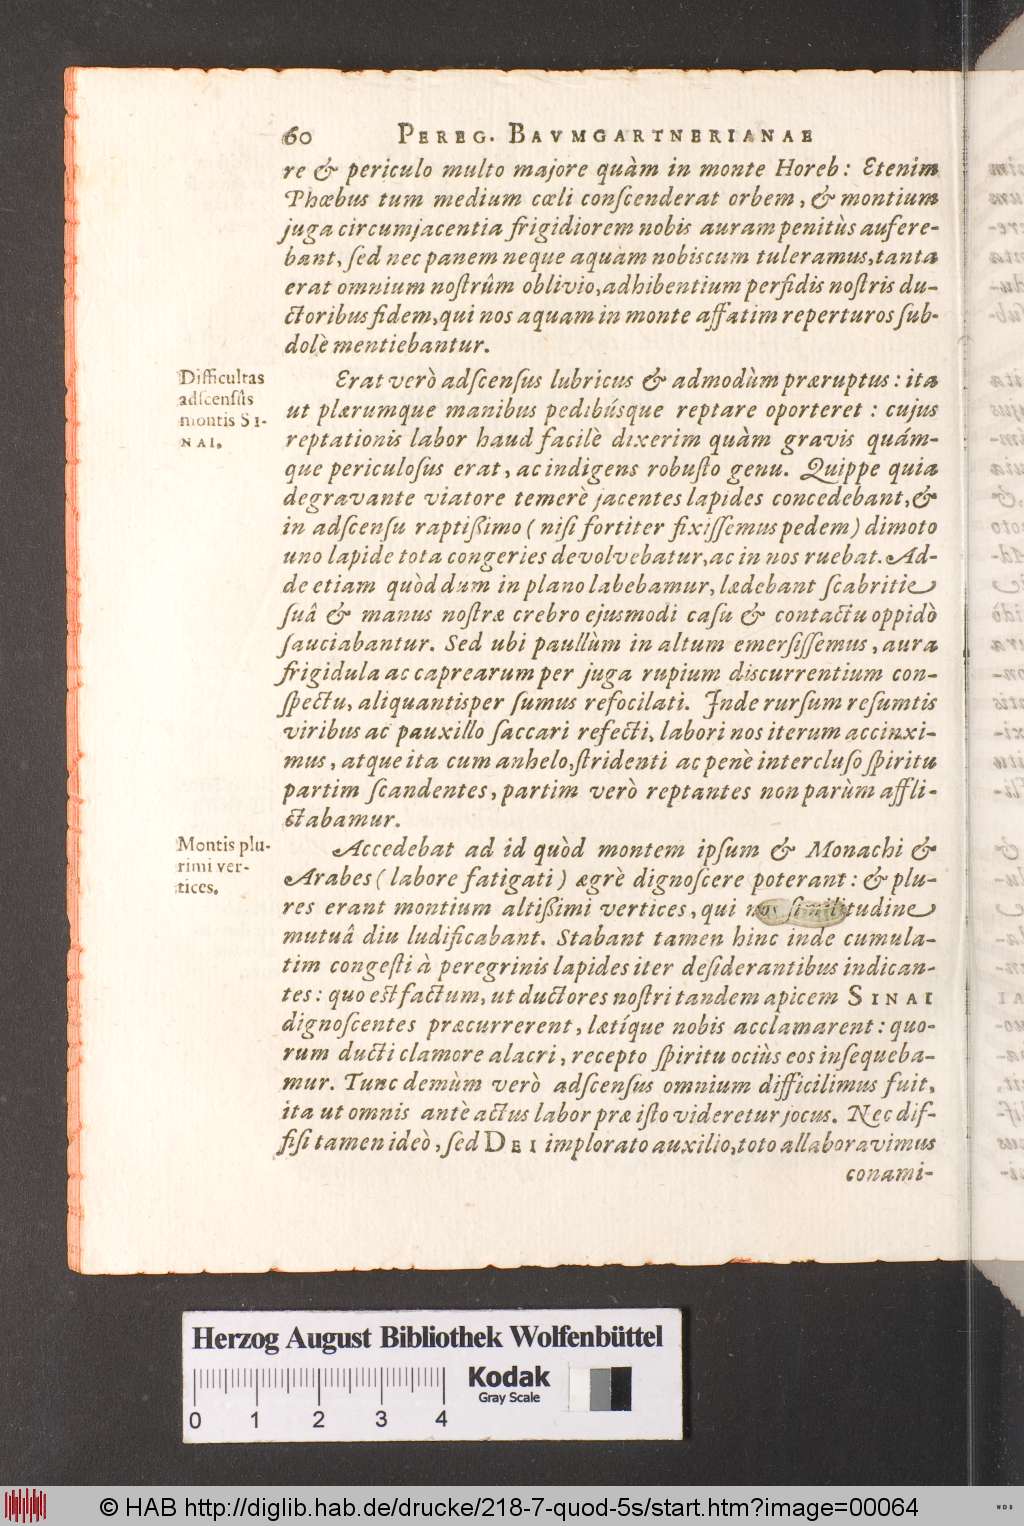 60 PEREG. BAVMGARTNERIANAE
re & periculo multo majore quàm in monte Horeb: Etenim
Phœbus tum medium cœli conſcenderat orbem, & montium
juga circumjacentia frigidiorem nobis auram penitùs aufere-
bant, ſed nec panem neque aquam nobiscum tuleramus, tanta
erat omnium noſtrûm oblivio, adhibentium perfidis noſtris du-
ctoribus fidem, qui nos aquam in monte affatim reperturos ſub-
dolè mentiebantur.
Difficultas
adſcenſûs
montis SI-
NAI.
Erat verò adſcenſus lubricus & admodùm præruptus: ita
ut plærumque manibus pedibúsque reptare oporteret: cujus
reptationis labor haud facilè dixerim quàm gravis quám-
que periculoſus erat, ac indigens robuſto genu. Quippe quia
degravante viatore temerè jacentes lapides concedebant, &
in adſcenſu raptißimo (niſi fortiter fixiſſemus pedem) dimoto
uno lapide tota congeries devolvebatur, ac in nos ruebat. Ad-
de etiam quòd dum in plano labebamur, lædebant ſcabritie
ſuâ & manus noſtræ crebro ejusmodi caſu & contactu oppidò
ſauciabantur. Sed ubi paullùm in altum emerſiſſemus, aura
frigidula ac caprearum per juga rupium discurrentium con-
ſpectu, aliquantisper ſumus refocilati. Inde rurſum reſumtis
viribus ac pauxillo ſaccari refecti, labori nos iterum accinxi-
mus, atque ita cum anhelo, ſtridenti ac penè intercluſo ſpiritu
partim ſcandentes, partim verò reptantes non parùm affli-
ctabamur.
Montis plu-
rimi ver-
tices.
Accedebat ad id quòd montem ipſum & Monachi &
Arabes (labore fatigati) ægrè dignoſcere poterant: & plu-
res erant montium altißimi vertices, qui nos ſimilitudine
mutuâ diu ludificabant. Stabant tamen hinc inde cumula-
tim congeſti à peregrinis lapides iter deſiderantibus indican-
tes: quo eſt factum, ut ductores noſtri tandem apicem SINAI
dignoſcentes præcurrerent, lætíque nobis acclamarent: quo-
rum ducti clamore alacri, recepto ſpiritu ociùs eos inſequeba-
mur. Tunc demùm verò adſcenſus omnium difficilimus fuit,
ita ut omnis antè actus labor præ iſto videretur jocus. Nec dif-
fiſi tamen ideò, ſed DEI implorato auxilio, toto allaboravimus
conami-
Herzog August Bibliothek Wolfenbüttel
Kodak
Gray Scale
0 1 2 3 4
© HAB http://diglib.hab.de/drucke/218-7-quod-5s/start.htm?image=00064